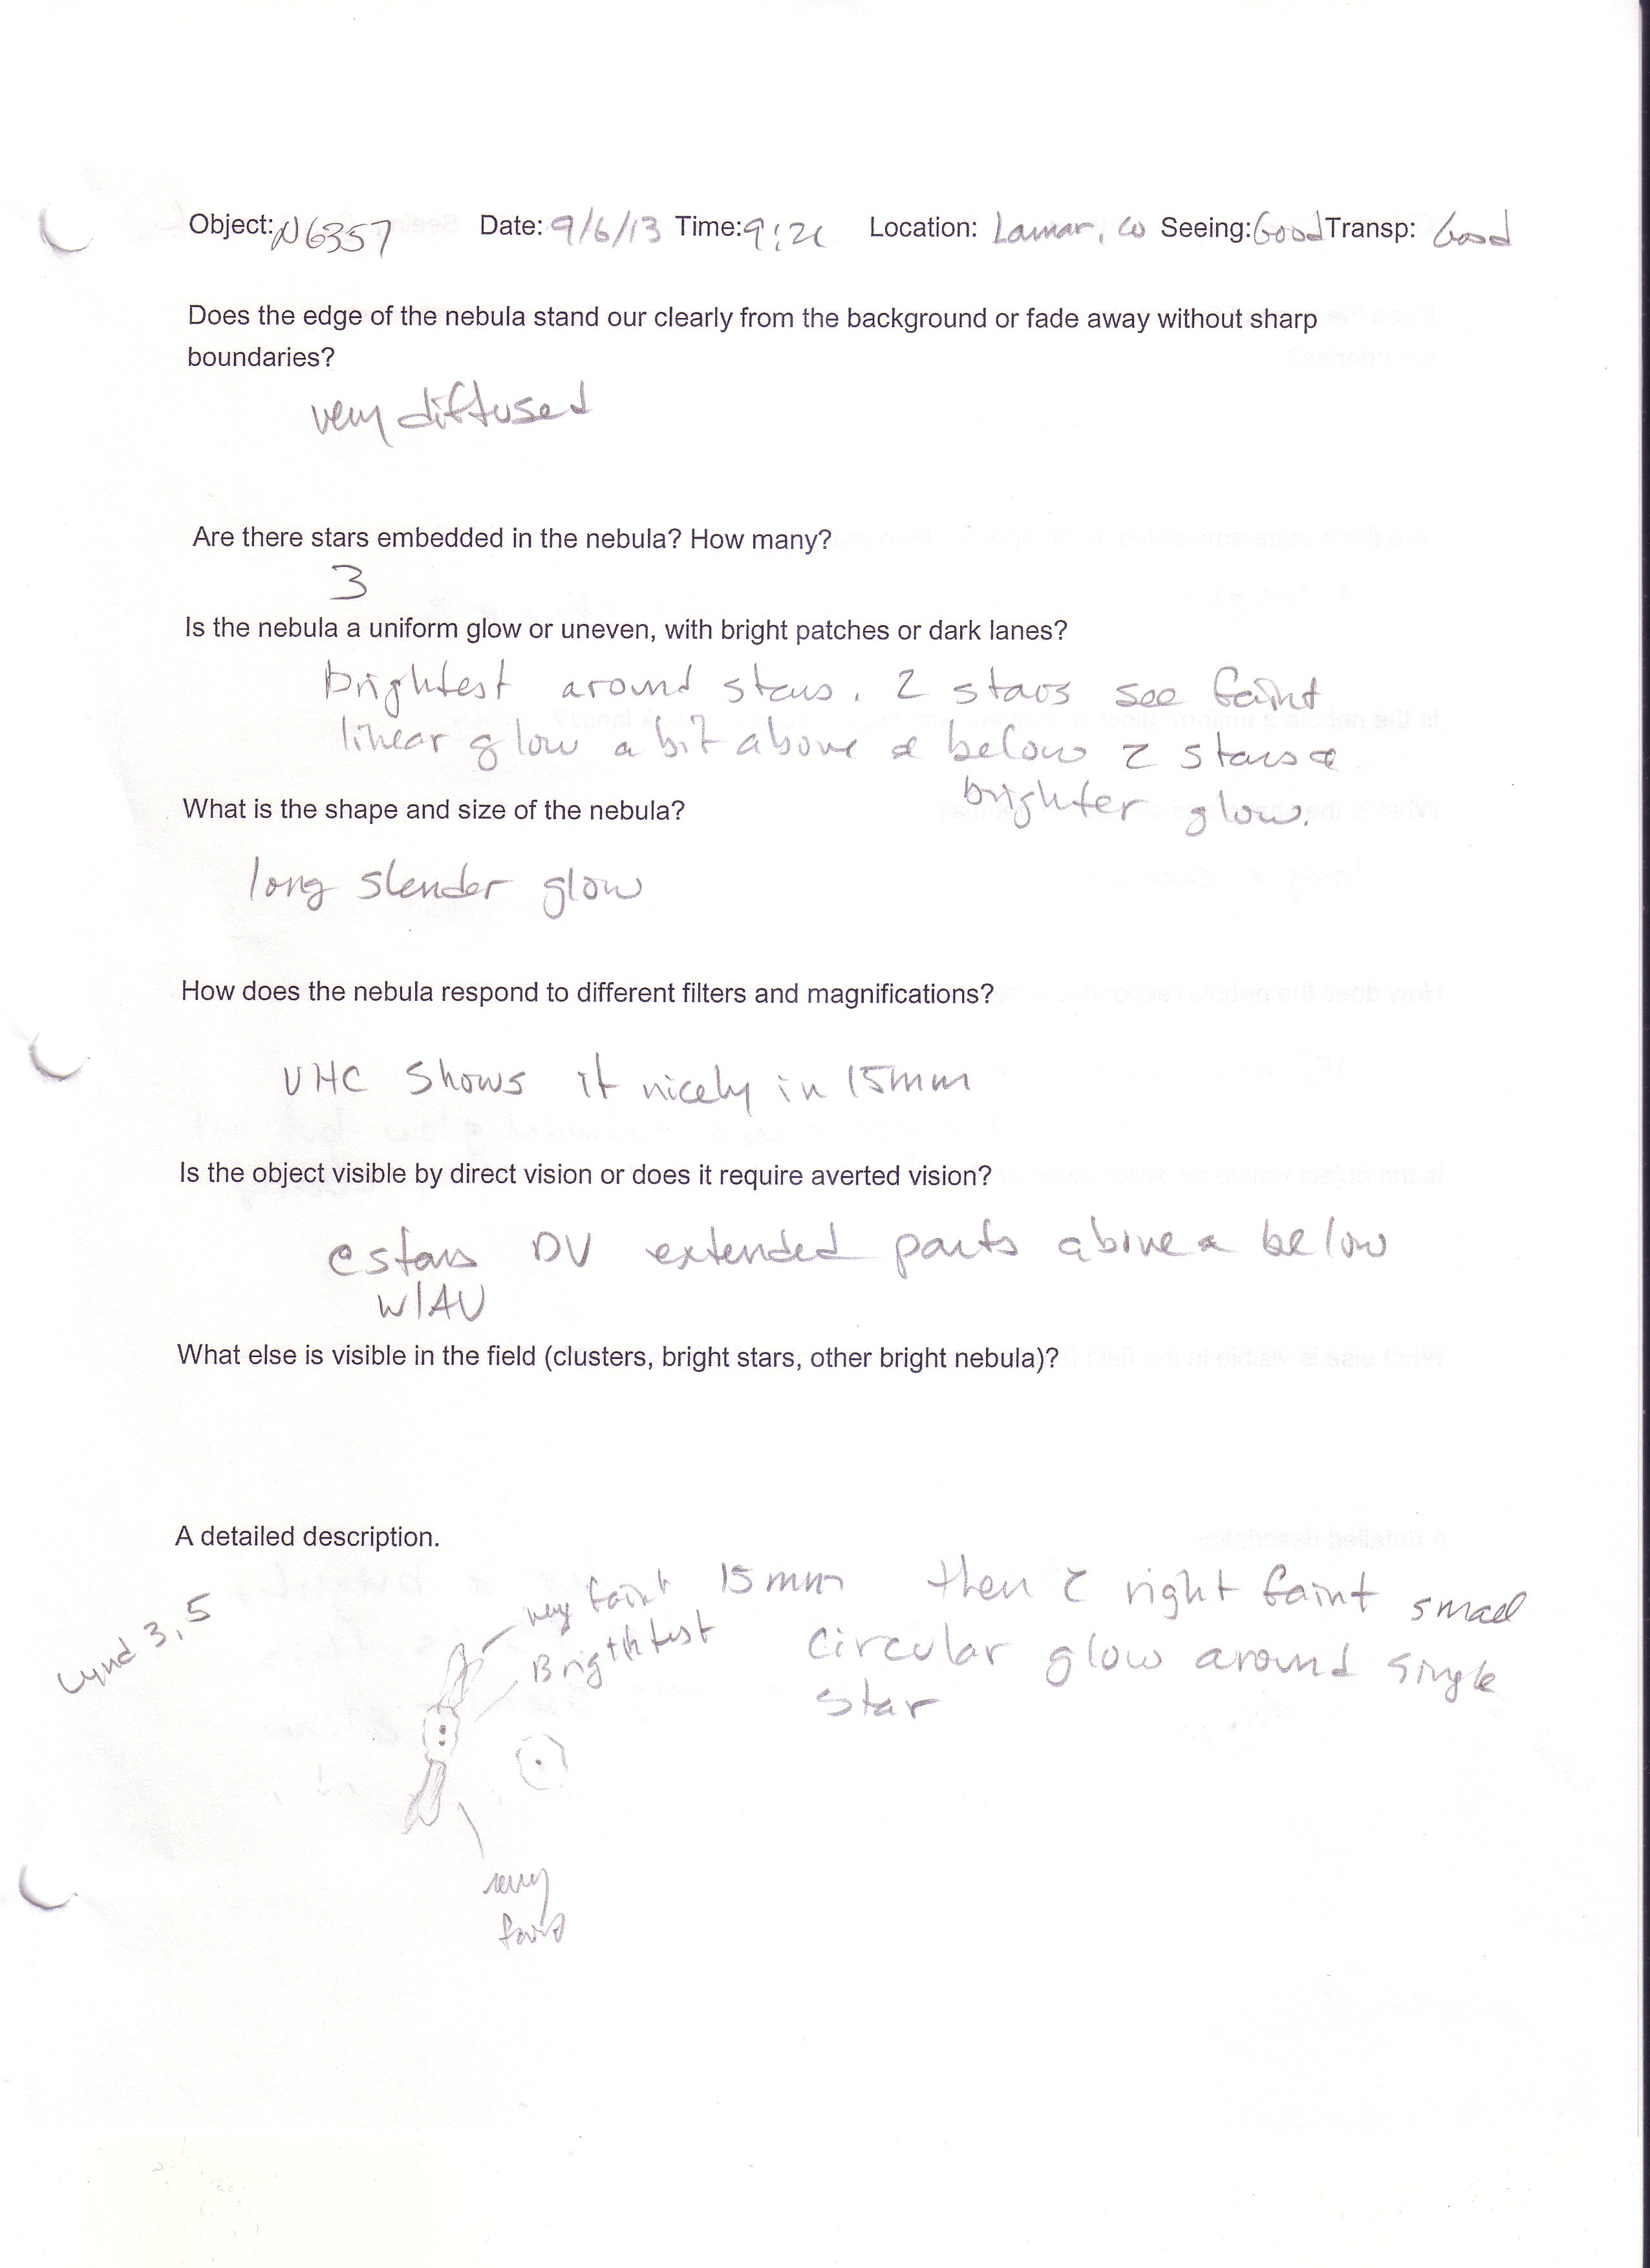 Object: N6357 Date: 9/6/13 Time: 9:2 Location: Lamar, CO Seeing: Good Transp: Good
Does the edge of the nebula stand our clearly from the background or fade away without sharp
boundaries?
very diffused
Are there stars embedded in the nebula? How many?
3
Is the nebula a uniform glow or uneven, with bright patches or dark lanes?
brightest around stars. 2 stars see faint
linear glow a bit above & below 2 stars &
brighter glow.
What is the shape and size of the nebula?
long slender glow
How does the nebula respond to different filters and magnifications?
UHC shows it nicely in 15mm
Is the object visible by direct vision or does it require averted vision?
@ stars DV extended parts above & below
w/AV
What else is visible in the field (clusters, bright stars, other bright nebula)?
A detailed description.
Lynd 3, 5
very faint
Brigthtest
15mm then 2 right faint small
circular glow around single
star
very
faint